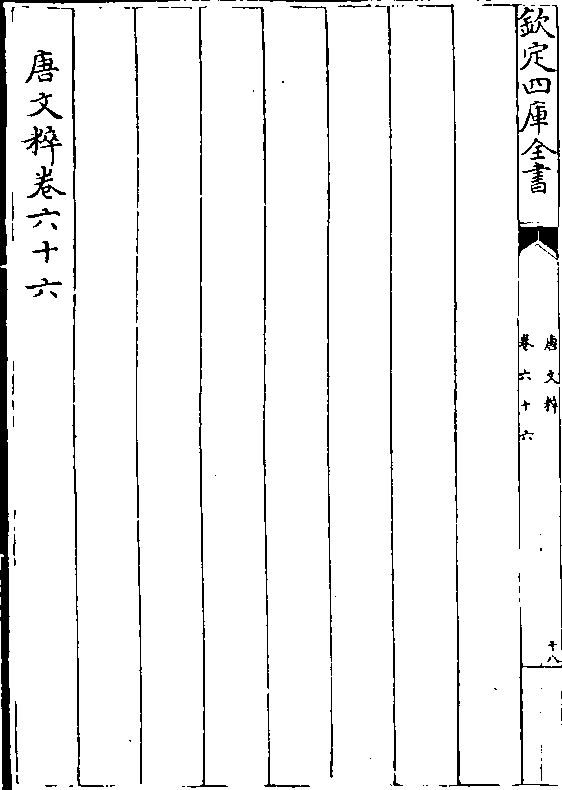 欽定四庫全書
唐文粹
卷六十六
十八
唐文粹卷六十六